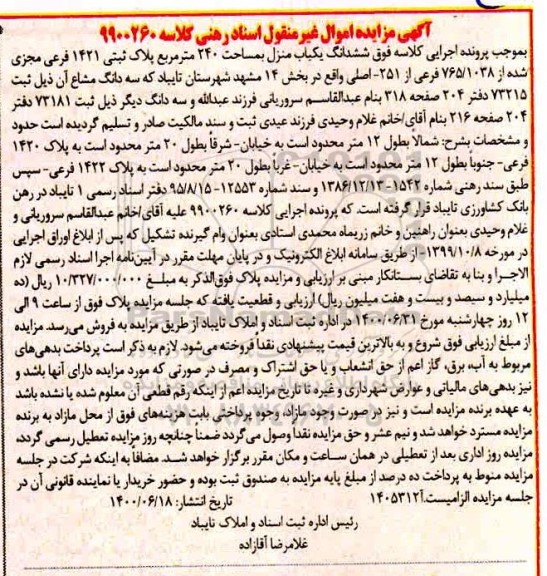 آگهی مزایده اموال غیرمنقول اسناد رهنی کلاسه ۹۹۰۰۲۶۰
بموجب پرونده اجرایی کلاسه فوق ششدانگ یکباب منزل بمساحت ۲۴۰ مترمربع پلاک ثبتی ۱۴۲۱ فرعی مجزی
شده از ۷۶۵/۱۰۳۸ فرعی از ۲۵۱- اصلی واقع در بخش ۱۴ مشهد شهرستان تایباد که سه دانگ مشاع آن ذیل ثبت
۷۳۲۱۵ دفتر ۲۰۴ صفحه ۳۱۸ بنام عبدالقاسم سروریانی فرزند عبدالله و سه دانگ دیگر ذیل ثبت ۷۳۱۸۱ دفتر
۲۰۴ صفحه ۲۱۶ بنام آقای/خانم غلام وحیدی فرزند عیدی ثبت و سند مالکیت صادر و تسلیم گردیده است حدود
و مشخصات بشرح: شمالا بطول ۱۲ متر محدود است به خیابان- شرقا بطول ۲۰ متر محدود است به پلاک ۱۴۲۰
فرعی- جنوبا بطول ۱۲ متر محدود است به خیابان- غربا بطول ۲۰ متر محدود است به پلاک ۱۴۲۲ فرعی- سپس
طبق سند رهنی شماره ۱۵۴۲- ۱۳۸۶/۱۲/۱۳ و سند شماره ۱۲۵۵۳- ۹۵/۸/۱۵ دفتر اسناد رسمی ۱ تایباد در رهن
بانک کشاورزی تایباد قرار گرفته است. که پرونده اجرایی کلاسه ۹۹۰۰۲۶۰ علیه آقای/خانم عبدالقاسم سروریانی و
غلام وحیدی بعنوان راهنین و خانم زریماه محمدی استادی بعنوان وام گیرنده تشکیل که پس از ابلاغ اوراق اجرایی
در مورخه ۱۳۹۹/۱۰/۸- از طریق سامانه ابلاغ الکترونیک و در پایان مهلت مقرر در آیین‌نامه اجرا اسناد رسمی لازم
الاجرا و بنا به تقاضای بستانکار مبنی بر ارزیابی و مزایده پلاک فوق‌الذکر به مبلغ ۱۰/۳۲۷/۰۰۰/۰۰۰ ریال (ده
میلیارد و سیصد و بیست و هفت میلیون ریال) ارزیابی و قطعیت یافته که جلسه مزایده پلاک فوق از ساعت ۹ الی
۱۲ روز چهارشنبه مورخ ۱۴۰۰/۰۶/۳۱ در اداره ثبت اسناد و املاک تایباد از طریق مزایده به فروش می‌رسد. مزایده
از مبلغ ارزیابی فوق شروع و به بالاترین قیمت پیشنهادی نقدا فروخته می‌شود. لازم به ذکر است پرداخت بدهی‌های
مربوط به آب، برق، گاز اعم از حق انشعاب و یا حق اشتراک و مصرف در صورتی که مورد مزایده دارای آنها باشد و
نیز بدهی‌های مالیاتی و عوارض شهرداری و غیره تا تاریخ مزایده اعم از اینکه رقم قطعی آن معلوم شده یا نشده باشد
به عهده برنده مزایده است و نیز در صورت وجود مازاد، وجوه پرداختی بابت هزینه‌های فوق از محل مازاد به برنده
مزایده مسترد خواهد شد و نیم عشر و حق مزایده نقدا وصول می‌گردد ضمنا چنانچه روز مزایده تعطیل رسمی گردد،
مزایده روز اداری بعد از تعطیلی در همان ساعت و مکان مقرر برگزار خواهد شد. مضافا به اینکه شرکت در جلسه
مزایده منوط به پرداخت ده درصد از مبلغ پایه مزایده به صندوق ثبت بوده و حضور خریدار یا نماینده قانونی آن در
جلسه مزایده الزامیست.آ۱۴۰۵۳۱۲ تاریخ انتشار: ۱۴۰۰/۰۶/۱۸
رئیس اداره ثبت اسناد و املاک تایباد
غلامرضا آقازاده